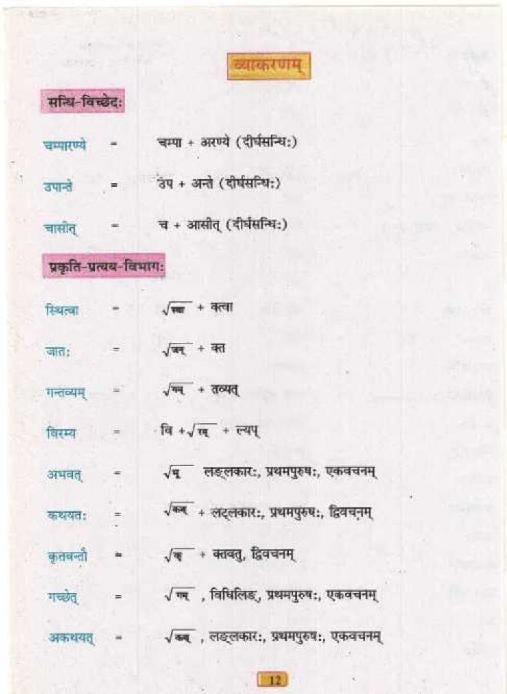 व्याकरणम्
सन्धि-विच्छेदः
चम्पारण्ये = चम्पा + अरण्ये (दीर्घसन्धिः)
उपान्ते = उप + अन्ते (दीर्घसन्धिः)
चासीत् = च + आसीत् (दीर्घसन्धिः)
प्रकृति-प्रत्यय-विभागः
स्थित्वा = √स्था + क्त्वा
जातः = √जन् + क्त
गन्तव्यम् = √गम् + तव्यत्
विरम्य = वि +√रम् + ल्यप्
अभवत् = √भू लङ्लकारः, प्रथमपुरुषः, एकवचनम्
कथयतः = √कथ् + लट्लकारः, प्रथमपुरुषः, द्विवचनम्
कृतवन्तौ = √कृ + क्तवतु, द्विवचनम्
गच्छेत् = √गम् , विधिलिङ्, प्रथमपुरुषः, एकवचनम्
अकथयत् = √कथ् , लङ्लकारः, प्रथमपुरुषः, एकवचनम्
12